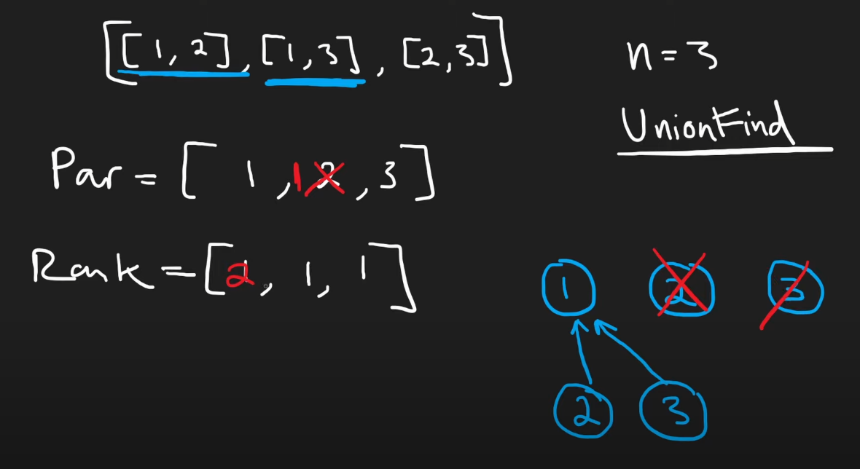 [[1, 2], [1, 3], [2, 3]]
n = 3
UnionFind
Par = [ 1 , 1 2 , 3 ]
Rank = [ 2 , 1 , 1 ]
1 2 3
2 3